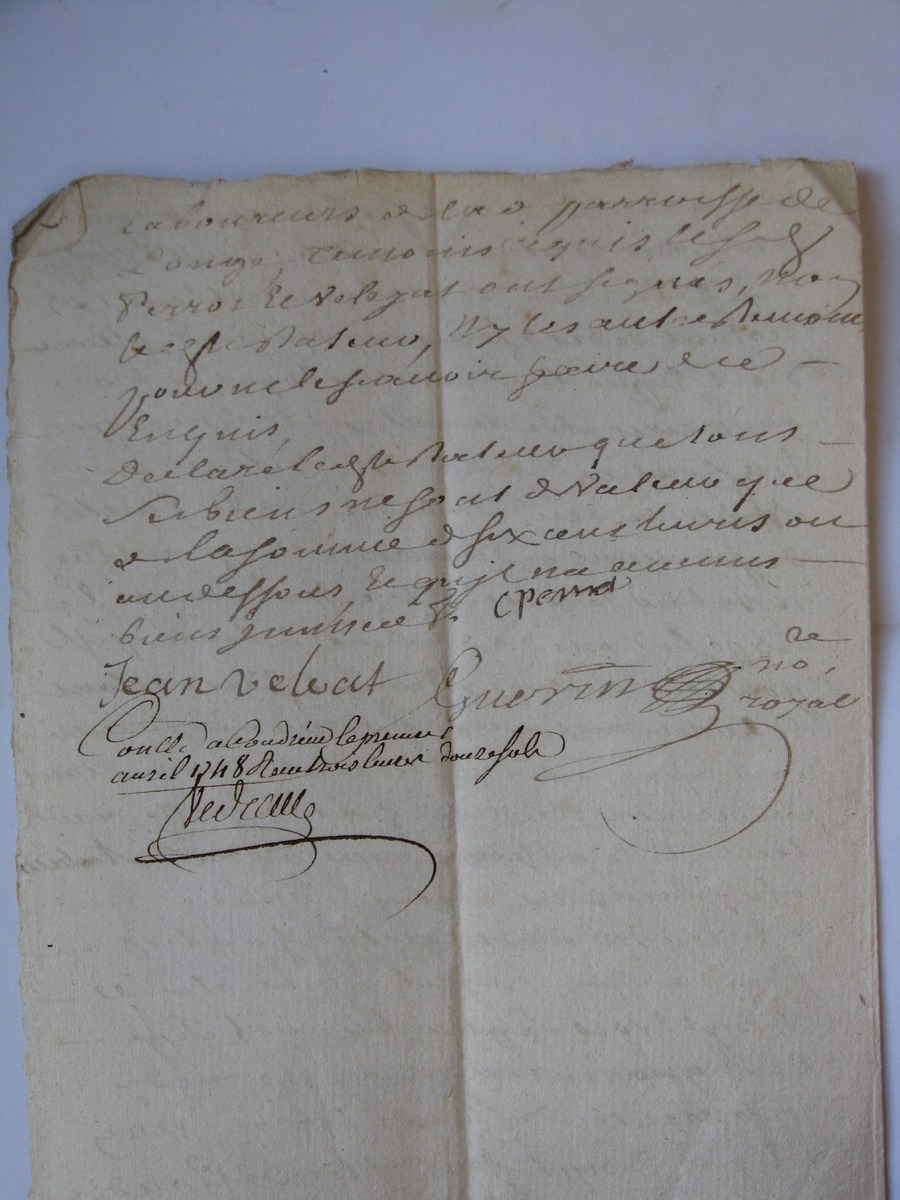 laboureurs de lad parroisse de
Longe, temoins requis lesd s
Perrot et Velyat ont signes, non
led testateur, ny les autres temoins
pour ne le scavoir faire de ce
Enquis,
Declare led testateur que tous
ses biens ne sont de valeur que
de la somme de six cens livres ou
au dessous, et qu'il n'a aucuns
biens
Jean veleat Guerin no re
royal
Conlle a Condrieu le premier
avril 1748 Receu trois livres douze sols